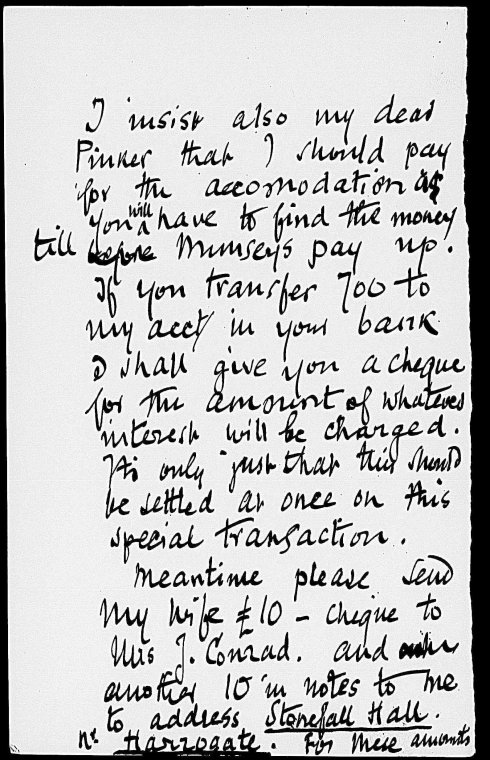 I insist also my dear
Pinker that I should pay
for the accomodation as
you will have to find the money
till before Munseys pay up.
If you transfer 700 to
my acct in your bank
I shall give you a cheque
for the amount of whatever
interest will be charged.
Its only just that this should
be settled at once on this
special transaction.
Meantime please send
my wife £10 – cheque to
Mrs J. Conrad. and
another 10 in notes to me
to address Stonefall Hall.
Nr Harrogate. For these amounts